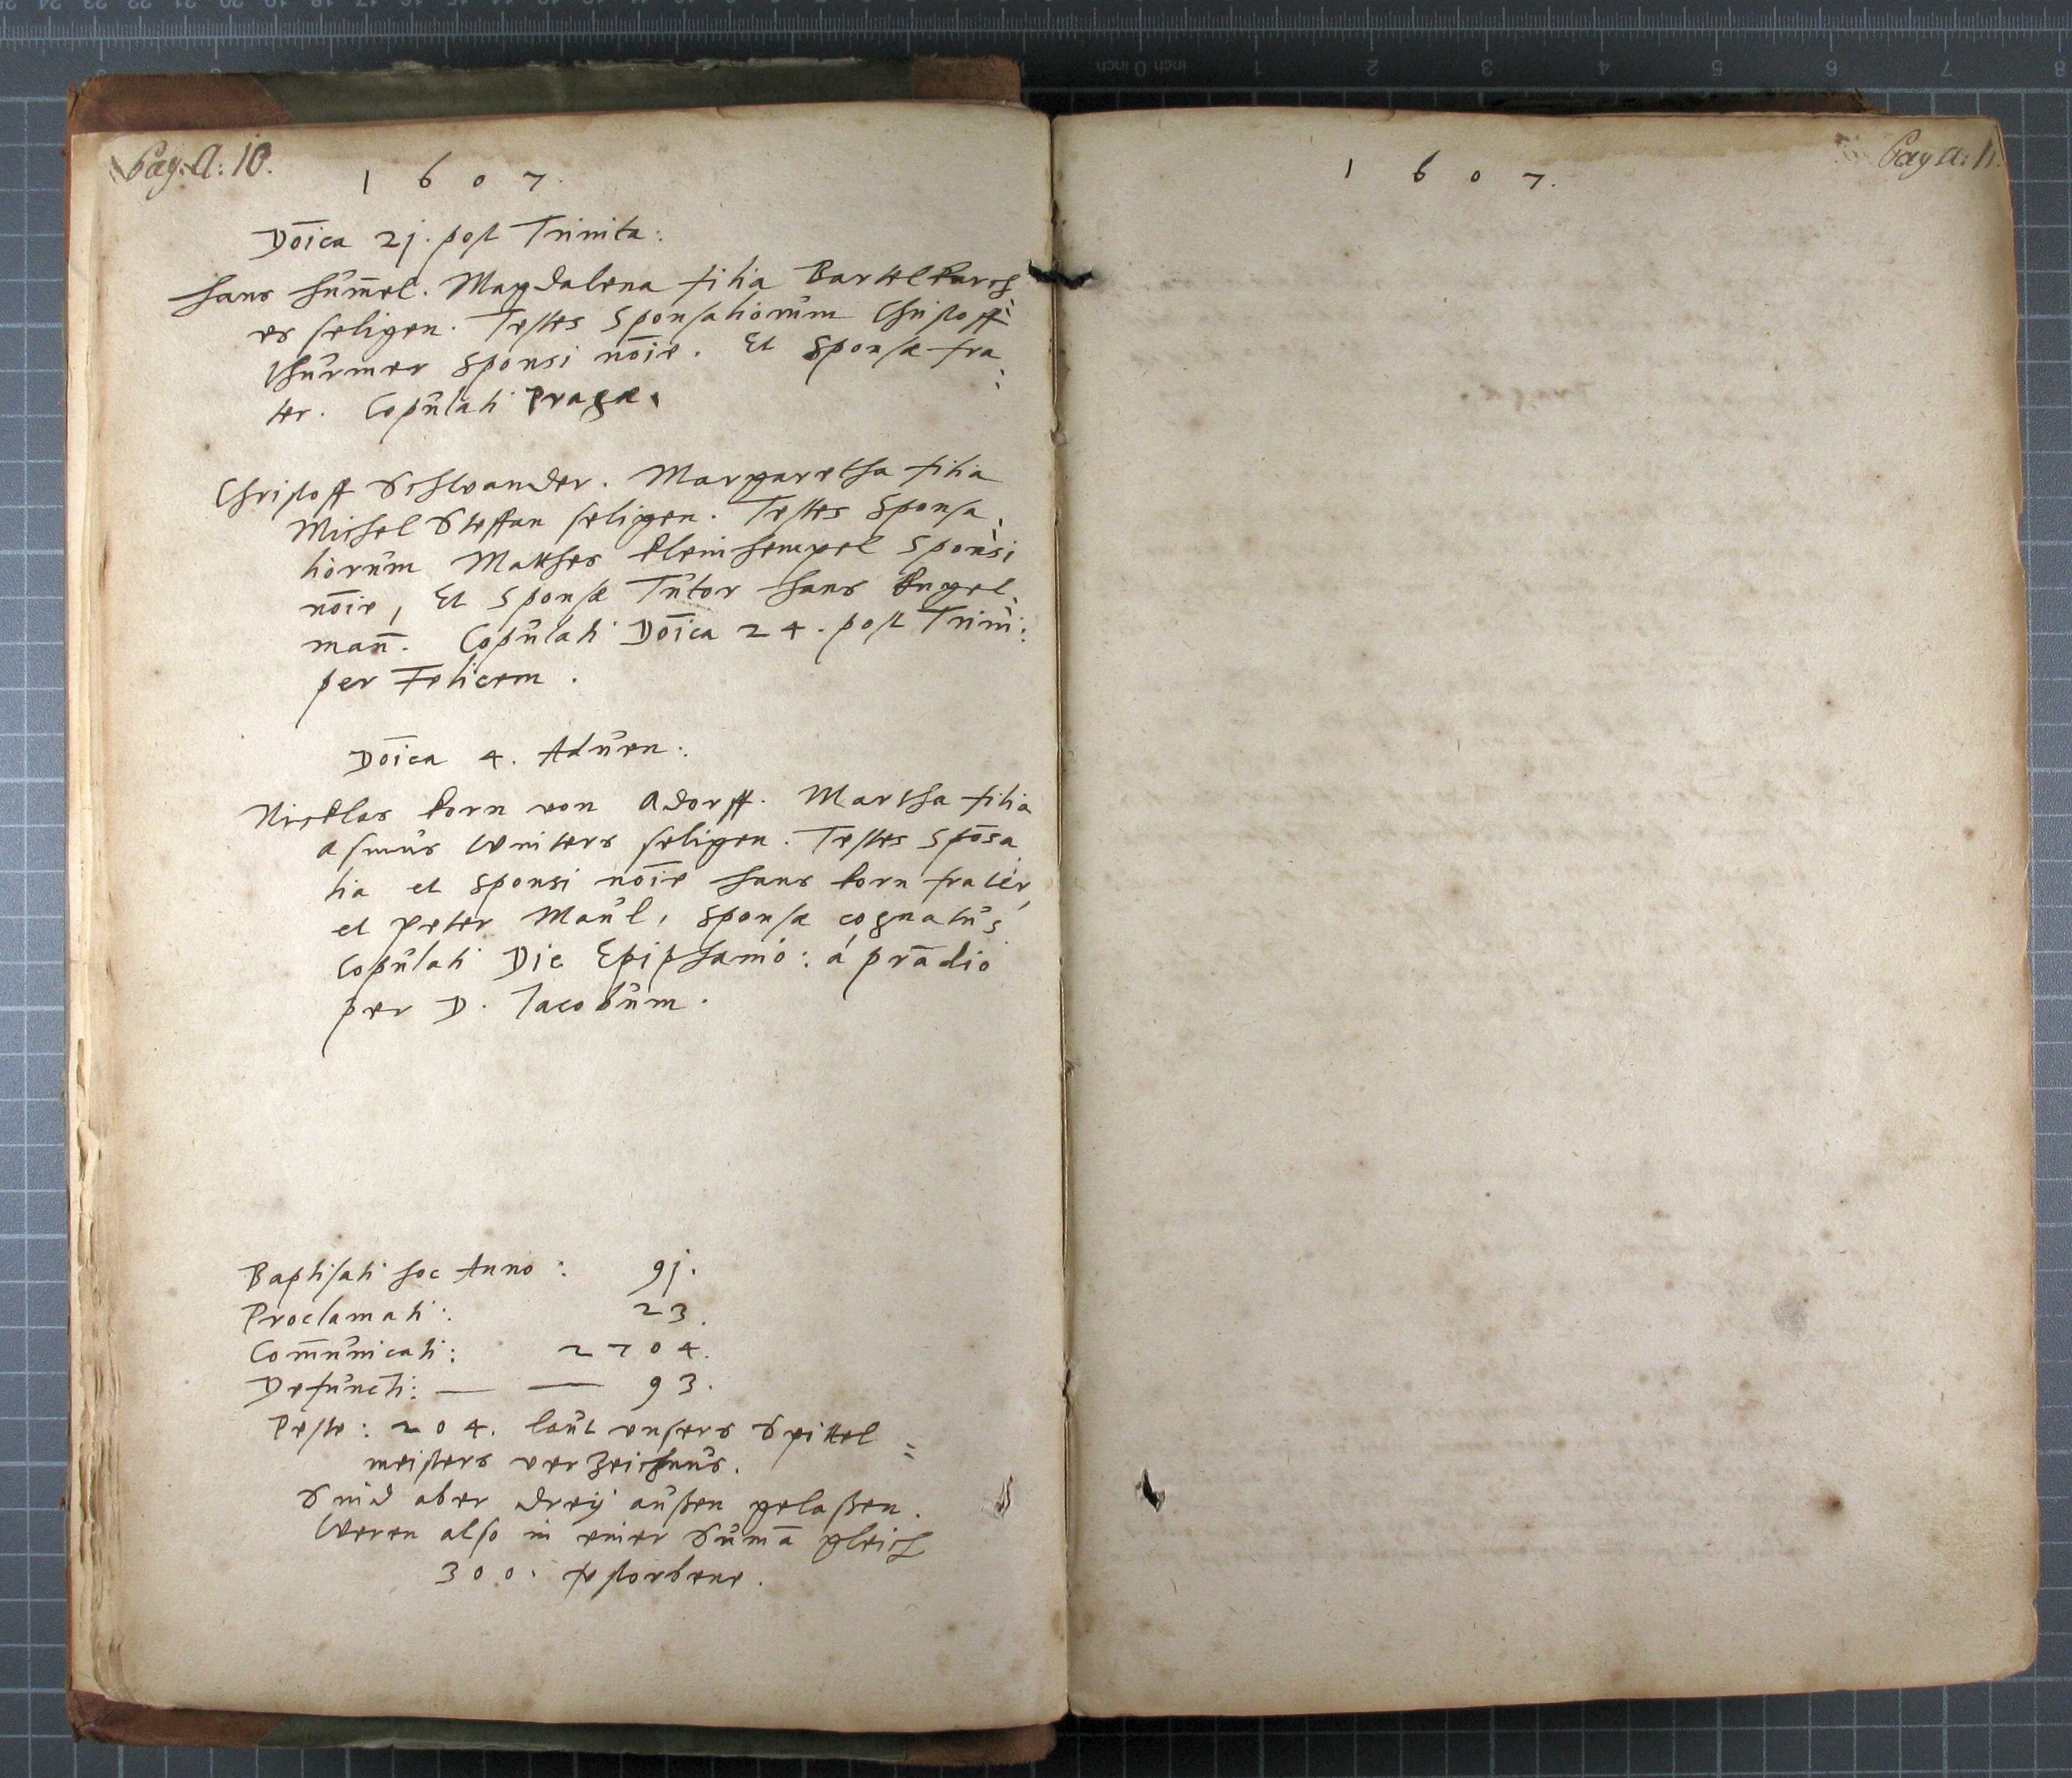 Pag: A: 10.
1 6 0 7.
Dōica 21. post Trinita:
Hans Hum̄el. Magdalena filia Bartel
es seligen. Testes Sponsaliorum Christoff
Thurmer Sponsi nōie. Et Sponsæ fra=
ter. Copulati Pragæ.
Christoff Schwander. Margaretha filia
Michel Steffan seligen. Testes Sponsa=
liorum Matthes Kleinhempel Sponsi
nōie, Et Sponsæ Tutor Hans Engel=
man̄. Copulati Dōica 24. post Trini:
per Felicem.
Dōica 4. Aduen:
Nicklas Korn von Adorff. Martha filia
Asmus Winters seligen. Testes Spōsa
lia et Sponsi nōie Hans Korn frater,
et Peter Maul, Sponsæ cognatus
Copulati Die Epiphanio: á prādio
per D. Iacobum.
Baptisati hoc Anno: 91.
Proclamati: 23.
Com̄unicati: 2704.
Defuncti: — — 93.
Peste: 204. laut vnsers Spittel=
meisters verzeichnus.
Sind aber dreij außen gelaßen.
Weren also in einer Sum̄a gleich
300. gestorbene.
1 6 0 7.
Pag A: 11.